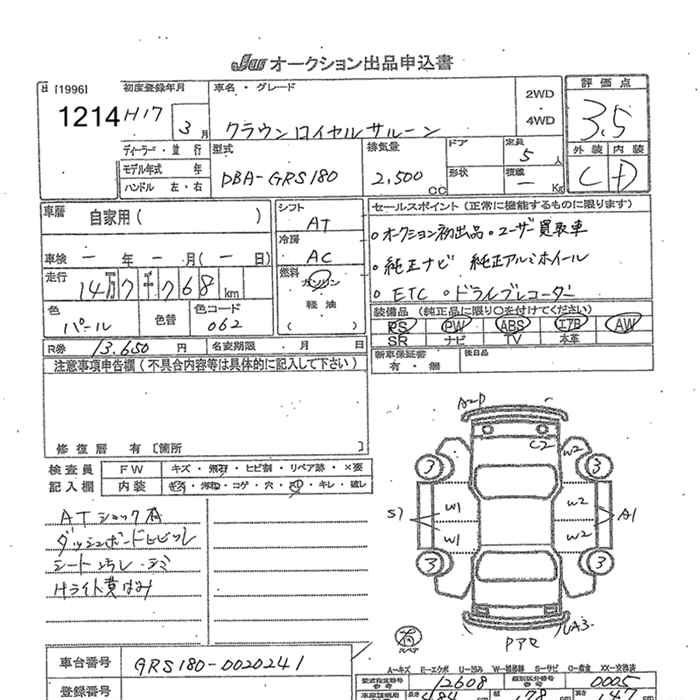 JW オークション出品申込書
H [1996]
1214
初度登録年月
H17
3 月
車名・グレード
クラウンロイヤルサルーン
2WD
・
4WD
評価点
3.5
外装 内装
C D
ディーラー・並行
モデル年式 年
ハンドル 左・右
型式
DBA-GRS180
排気量
2,500 CC
ドア
形状
定員
5 人
積載
ー Kg
車歴
自家用( )
車検 ー 年 ー 月(ー日)
走行
14万7千768 km
色
パール
色替
色コード
062
R券 13,650 円
名変期限 ・ 月 ・ 日
シフト
AT
冷房
AC
燃料
ガソリン
・
軽油
( )
セールスポイント(正常に機能するものに限ります)
○オークション初出品 ○ユーザー買取車
○純正ナビ 純正アルミホイール
○ETC ○ドライブレコーダー
装備品(純正品に限り○を付けてください)
PS PW ABS エアB AW
SR ナビ TV 本革
新車保証書
有・無
後日品
注意事項申告欄(不具合内容等は具体的に記入して下さい)
修復歴 有[箇所 ]
検査員
記入欄
FW キズ・飛石・ヒビ割・リペア跡・×要
内装
コゲ・穴・
キレ・破レ
ATショック有
ダッシュボードヒビワレ
シート汚レ・スミ
Hライト黄ばみ
車台番号 GRS180-0020241
登録番号
A2P
C2
W2
3
3
S1
W1
W1
W2
W2
A1
3
3
UA3
有
スペア
A-キズ E-エクボ U-凹み W-補修跡 S-サビ C-腐食 XX-交換済
型式指定番号 12608
類別区分番号 0005
長さ 484
178
147